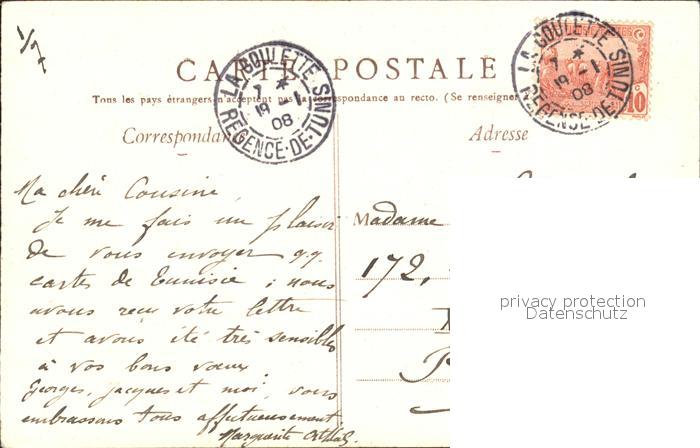 1/7
CARTE POSTALE
Tous les pays étrangers n'acceptent pas la correspondance au recto. (Se renseigner
Correspondance
Adresse
LA GOULETTE
7 *
19 -1
08
REGENCE-DE-TUNIS
LA GOULETTE
7 *
19 -1
08
REGENCE-DE-TUNIS
10
Ma chère Cousine,
Je me fais un plaisir
de vous envoyer qq.
cartes de Tunisie ; nous
avons reçu votre lettre
et avons été très sensibles
à vos bons vœux.
Georges, Jacques et moi, vous
embrassons tous affectueusement
Marguerite
Madame
172,
privacy protection
Datenschutz